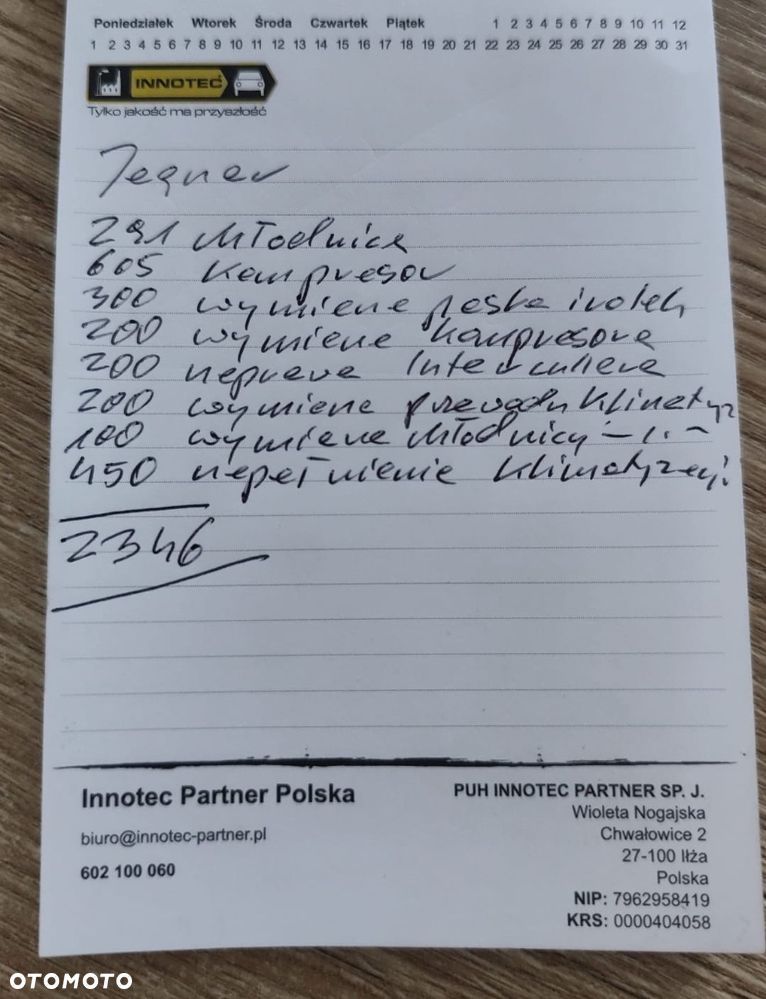 Poniedziałek Wtorek Środa Czwartek Piątek 1 2 3 4 5 6 7 8 9 10 11 12
1 2 3 4 5 6 7 8 9 10 11 12 13 14 15 16 17 18 19 20 21 22 23 24 25 26 27 28 29 30 31
INNOTEC
Tylko jakość ma przyszłość
291 chłodnica
605 kompresor
300 wymiana paska i rolek
200 wymiana kompresora
200 naprawa
200 wymiana przewodu klimatyz
100 wymiana chłodnicy
450 napełnienie klimatyzacji
2346
Innotec Partner Polska
biuro@innotec-partner.pl
602 100 060
PUH INNOTEC PARTNER SP. J.
Wioleta Nogajska
Chwałowice 2
27-100 Iłża
Polska
NIP: 7962958419
KRS: 0000404058
OTOMOTO